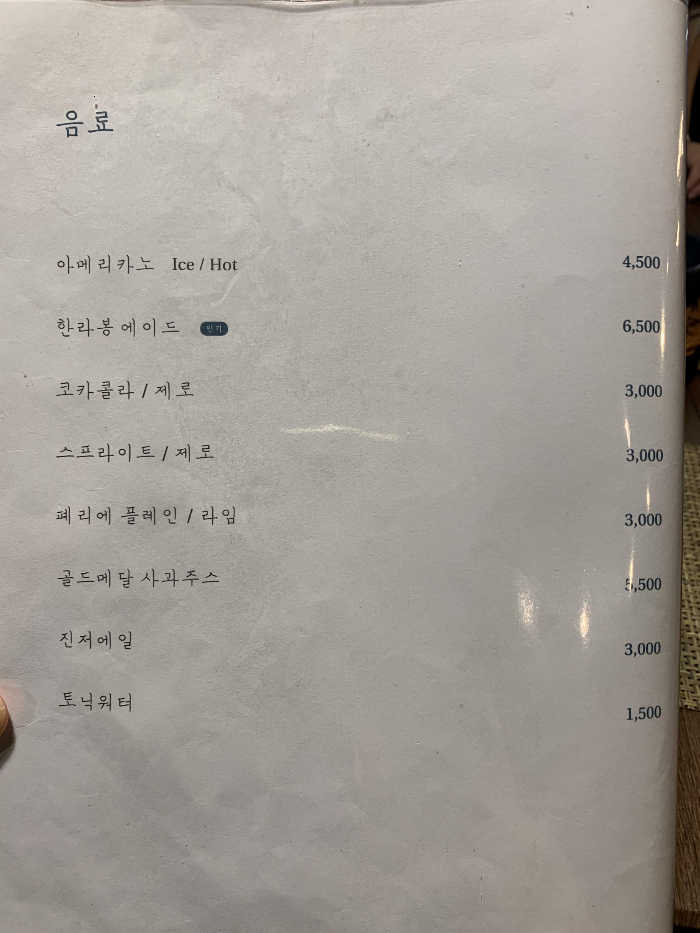 음료
아메리카노 Ice / Hot 4,500
한라봉에이드 인기 6,500
코카콜라 / 제로 3,000
스프라이트 / 제로 3,000
페리에 플레인 / 라임 3,000
골드메달 사과주스 5,500
진저에일 3,000
토닉워터 1,500